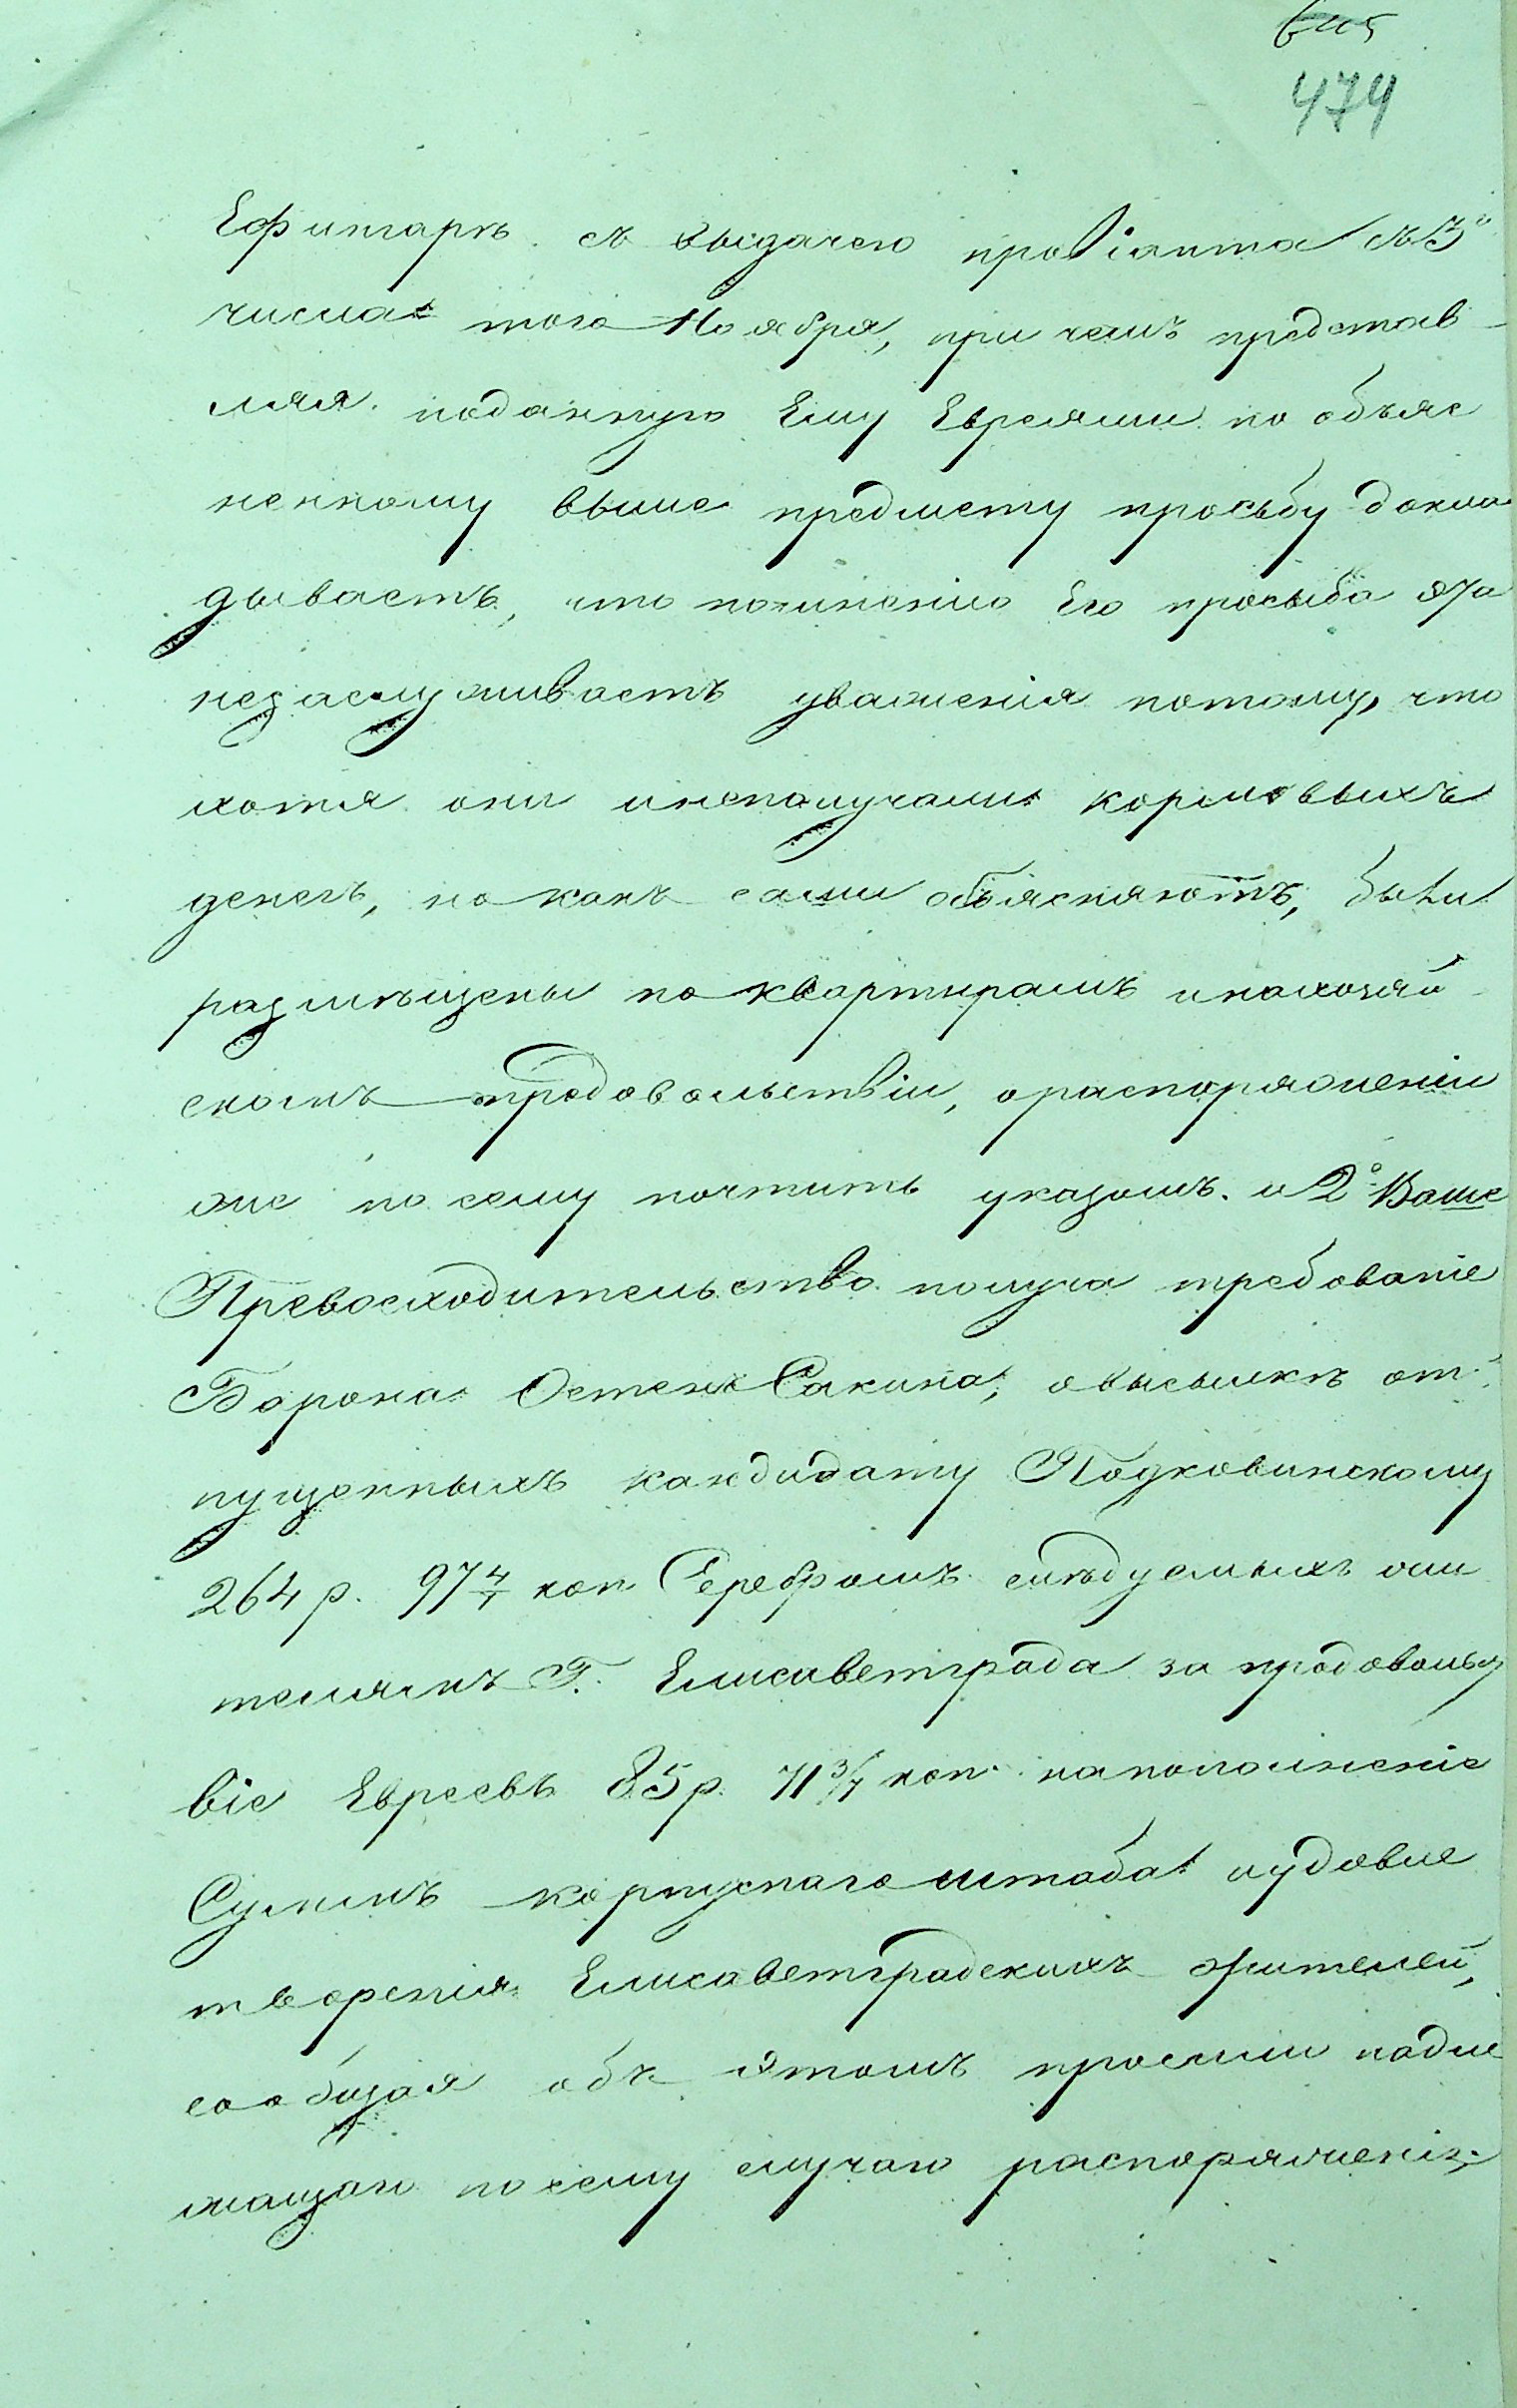 474
Ефитаръ съ выдачею провіанта съ 3го
числа того Ноября, при чемъ представ-
ляя поданную Ему Евреями по объяс
ненному выше предмету просьбу докла
дываетъ, что помненію Его просьба эта
незаслуживаетъ уваженія потому, что
хотя они инеполучали кормовыхъ
денегъ, но какъ сами объясняютъ, были
размѣщены по квартирамъ инахозяй-
скомъ продовольствіи, ораспоряженіи
же по сему почтить указомъ. и 2е Ваше
Превосходительство получа требованіе
Барона Остенъ Сакина, овысылкѣ от-
пущенныхъ кандидату Подковинскому
264 р. 97 4/7 коп Серебромъ слѣдуемыхъ жи
телямъ Г. Елисаветграда за продовольст
віе Евреевъ 85 р. 71 3/7 коп. напополненіе
Суммъ корпуснаго штаба иудовле
творенія Елисаветградскихъ жителей,
сообщая объ этомъ просили надле
жащаго посему случаю распоряженія;